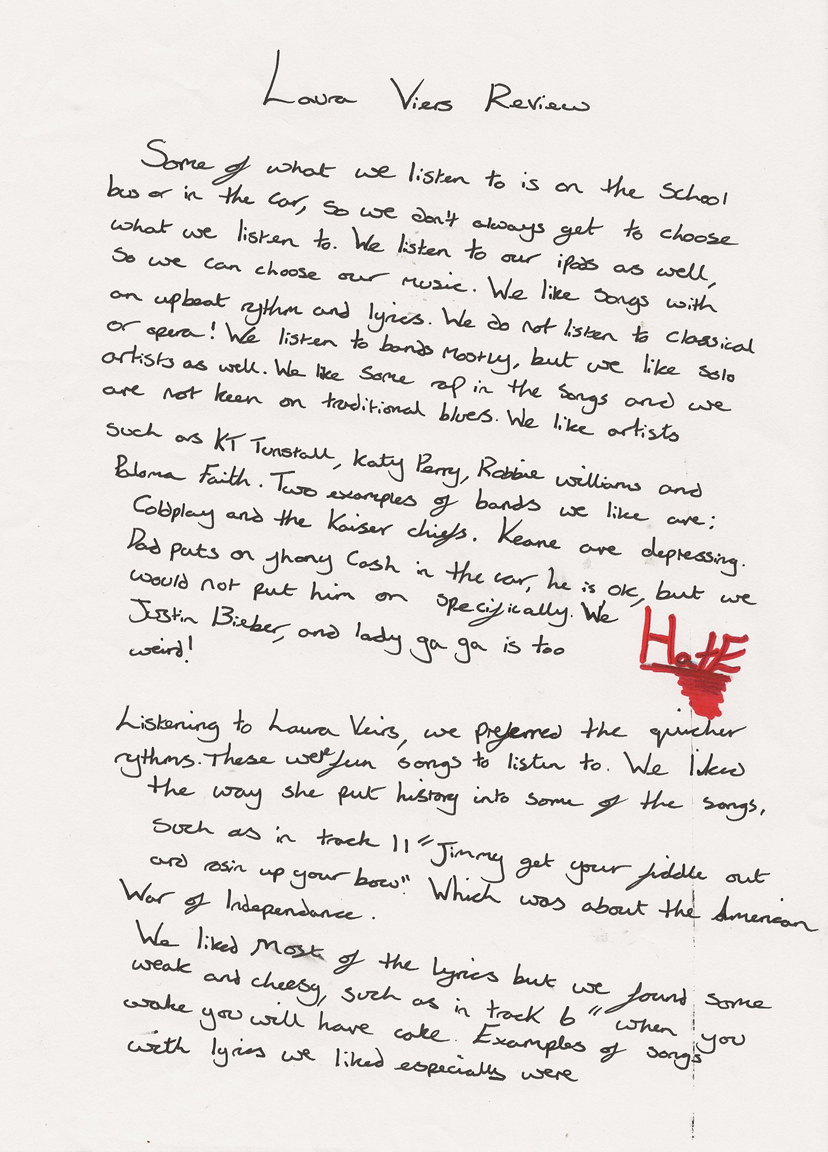 Laura Viers Review
Some of what we listen to is on the School
bus or in the car, so we don't always get to choose
what we listen to. We listen to our ipods as well,
so we can choose our music. We like songs with
an upbeat rythm and lyrics. We do not listen to classical
or opera! We listen to bands mostly, but we like solo
artists as well. We like some rap in the songs and we
are not keen on traditional blues. We like artists
such as KT Tunstall, Katy Perry, Robbie williams and
Paloma Faith. Two examples of bands we like are;
Coldplay and the Kaiser chiefs. Keane are depressing.
Dad puts on jhony Cash in the car, he is ok, but we
would not put him on specifically. We HatE
Justin Bieber, and lady ga ga is too
weird!
Listening to Laura Veirs, we preferred the quicher
rythms. These were fun songs to listen to. We liked
the way she put history into some of the songs,
such as in track 11 "Jimmy get your fiddle out
and rosin up your bow". Which was about the American
War of Independance.
We liked Most of the lyrics but we found some
weak and cheesy, such as in track 6 "when you
wake you will have cake. Examples of songs
with lyrics we liked especially were